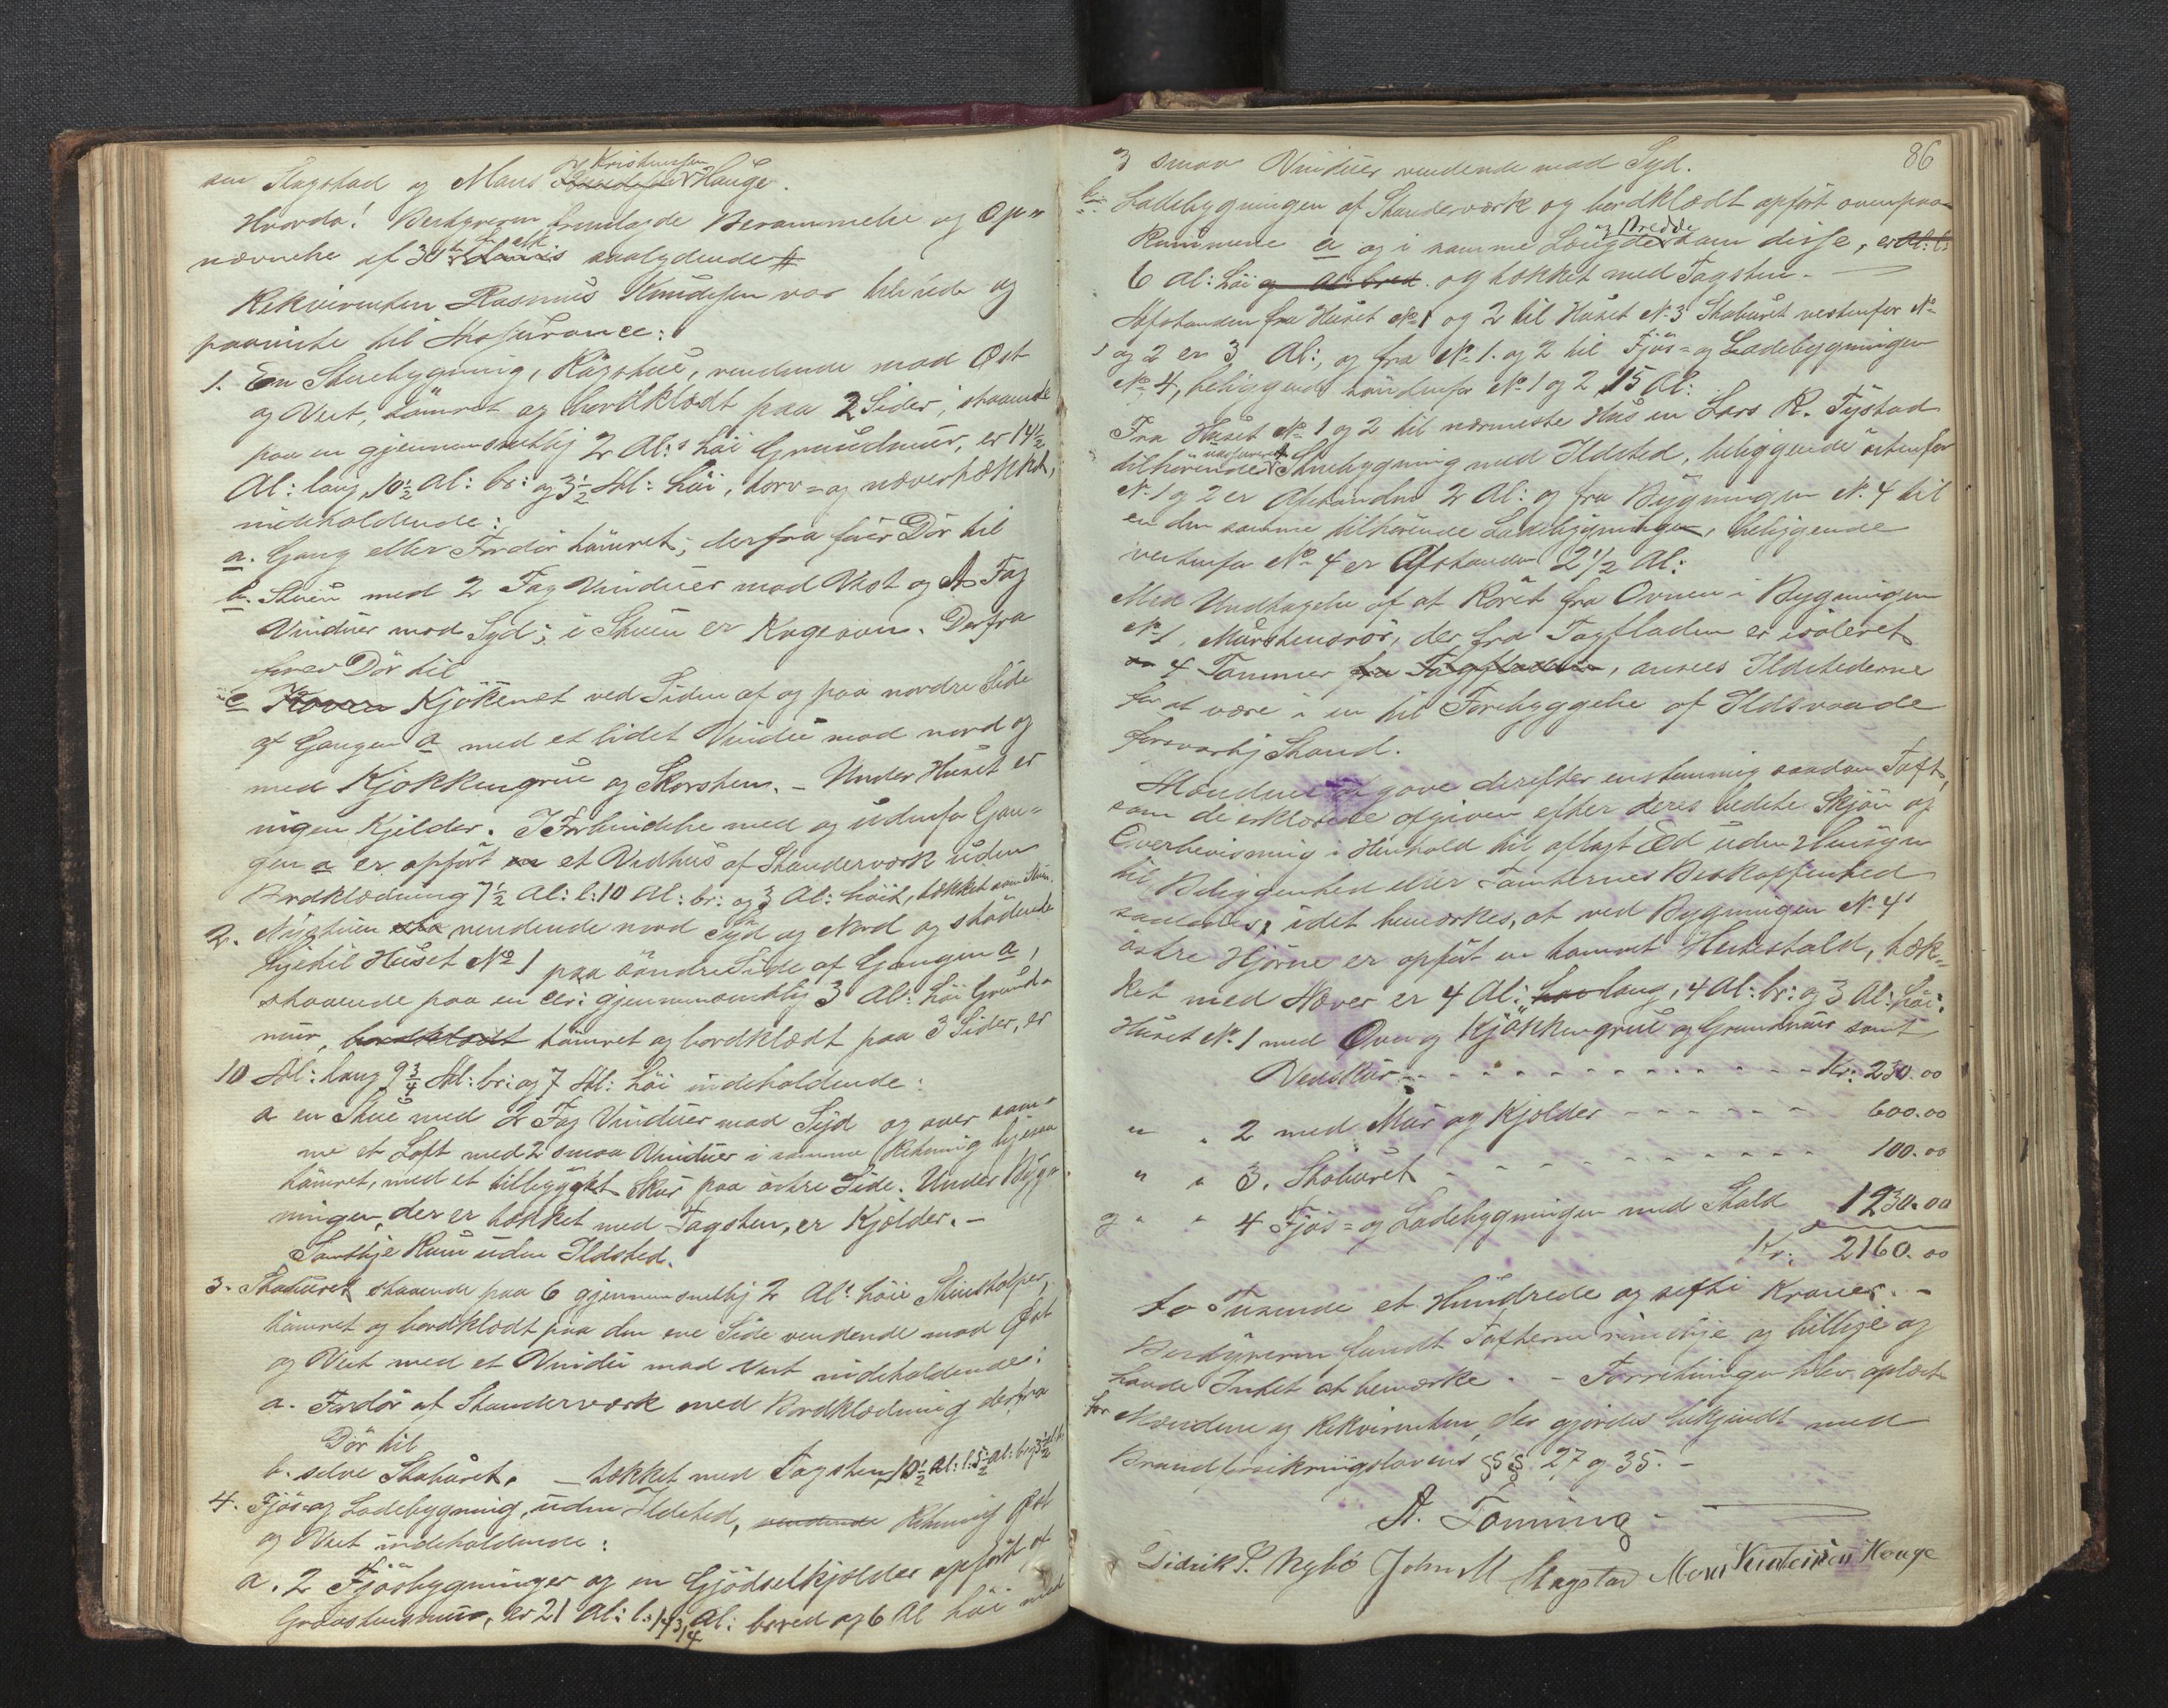 sen Stagstad og Mons Knudsen Kristensen Hauge.
Hvorda! Bestyreren fremlagde Berammelse og Op=
nævnelse af 30te saalydende #
Rekvirenten Rasmus Knudsen var tilstede og
paaviste til Assurance:
1. En Stuebygning, Røgstue, vendende mod Øst
og Vest, tømret og bordklædt paa 2 Sider, staaende
paa en gjennemsnitlig 2 Al: høi Grundmur, er 14½
Al: lang, 10½ Al: br: og 3½ Al: høi, torv= og nævertækket,
indeholdende:
a. Gang eller Fordør tømret; derfra fører Dør til
b. Stuen med 2 Fag Vinduer mod Vest og 1 Fag
Vinduer mod Syd; i Stuen er Kogeovn. Derfra
fører Dør til
c Koven Kjøkenet ved Siden af og paa nordre Side
af Gangen a med et lidet Vindu mod nord og
med Kjøkkengrue og Skorsten. – Under Huset er
ingen Kjelder. I Forbindelse med og udenfor Gan=
gen a er opført en et Vedhus af Standerværk uden
Bordklædning 7½ Al: l: 10 Al: br: og 3 Al: høit, tækket som Stuen.
2. Nystuen vendende mod Syd og Nord og stødende
lige til Huset No 1 paa søndre Side af Gangen a,
staaende paa en cir: gjennemsnitlig 3 Al: høi Grund=
mur, bordklædt tømret og bordklædt paa 3 Sider, er
10 Al: lang 9¾ Al: br: og 7 Al: høi indeholdende:
a en Stue med 2 Fag Vinduer mod Syd og over sam=
me et Loft med 2 smaa Vinduer i samme Retning ligesaa
tømret, med et tilbygget Skur paa østre Side. Under Byg=
ningen, der er tækket med Tagsten, er Kjælder. –
Samtlige Rum uden Ildsted.
3. Stabüret staaende paa 6 gjennemsnitlig 2 Al: høie Stenstolper,
tømret og bordklædt paa den ene Side vendende mod Øst
og Vest med et Vindu mod Vest indeholdende:
a. Fordør af Standerværk med Bordklædning derfra
Dør til
b. selve Stabüret. – tækket med Tagsten, 10½ Al: l: 5½ Al: br: 3½ Al: h:
4. Fjøs= og Ladebygning, uden Ildsted, vendende Retning Øst
og Vest indeholdende:
a. 2 Fjøsbygninger og en Gjødselkjelder opført af
Graastensmur, er 21 Al: l: 14¾ Al: bred og 6 Al høi med
86
3 smaa Vinduer vendende mod Syd.
b. Ladebygningen af Standerværk og bordklædt opført ovenpaa
Rummene a og i samme Længde og Bredde som disse, er Al: l:
6 Al: høi og Al: bred og tækket med Tagsten. –
Afstanden fra Huset No 1 og 2 til Huset No 3 Stabüret vestenfor No
1 og 2 er 3 Al:, og fra No 1. og 2 til Fjøs= og Ladebygningen
No 4, beliggende søndenfor No 1 og 2 15 Al:
Fra Huset No 1 og 2 til nærmeste Hus en Lars R. Tystad
tilhørende uassureret Stuebygning med Ildsted, beliggende østenfor
No 1 og 2 er Afstanden 2 Al: og fra Bygningen No 4 til
en den samme tilhørende Ladebygningen, beliggende
vestenfor No 4 er Afstanden 2½ Al:
Med Undtagelse af at Røret fra Ovnen i Bygningen
No 1, Murstensrør, der fra Tagfladen er isoleret
4 Tommer fra Tagfladen, ansees Ildstederne
for at være i en til Forebyggelse af Ildsvaade
forsvarlig Stand.
Mændene gave derefter enstemmig saadan Taxt,
som de erklærede afgiven efter deres bedste Skjøn og
Overbevisning i Henhold til aflagt Ed uden Hensyn
til Beliggenhed eller Tomternes Beskaffenhed
saaledes, idet bemærkes, at ved Bygningen No 4's
østre Hjørne er opført en tømret Hestestald, tæk=
ket med Næver er 4 Al: lang, 4 Al: br: og 3 Al: høi.
Huset No 1 med Ovn og Kjøkkengrue og Grundmur samt
Vedskur - - - - - - - - - - Kr: 230.00
" " 2 med Mur og Kjelder - - - - - - 600.00
" " 3. Stabüret - - - - - - - - - - 100.00
og " " 4 Fjøs= og Ladebygningen med Stald 1230.00
Kr: 2160.00
to Tusende et Hundrede og sexti Kroner. –
Bestyreren fandt Taxterne rimelige og billige og
havde Intet at bemærke. – Forretningen blev oplæst
for Mændene og Rekvirenten, der gjordes bekjendt med
Brandforsikringslovens §§ 27 og 35. –
A. Tonning
Didrik P. Nybø John M Stagstad Mons Kristensen Hauge